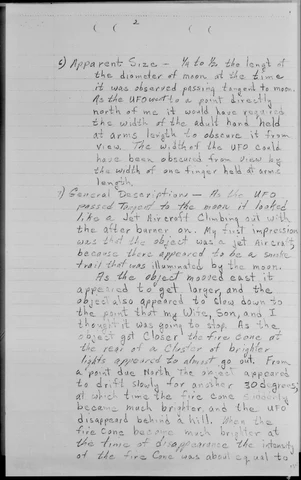 2
6) Apparent Size - 1/4 to 1/2 the lengt of
the diameter of moon at the time
it was observed passing tangent to moon.
As the UFO went to a point directly
north of me it would have required
the width of the adult hand held
at arms length to obscure it from
view. The width of the UFO could
have been obscured from view by
the width of one finger held at arms
length.
7) General Descriptions - As the UFO
passed Tangent to the moon it looked
like a Jet Aircraft Climbing out with
the after burner on. My first impression
was that the object was a jet Aircraft
because there appeared to be a smoke
trail that was illuminated by the moon.
As the object mooved east it
appeared to get larger, and the
object also appeared to slow down to
the point that my Wife, Son, and I
thought it was going to stop. As the
object got closer the fire cone at
the rear of a cluster of brighter
lights appeared to almost go out. From
a point due North The object appeared
to drift slowly for another 30 degrees,
at which time the fire cone suddenly
became much brighter, and the UFO
disappeard behind a hill. When the
fire Cone became much brighter at
the time of disappearance the intensity
of the fire Cone was about equal to